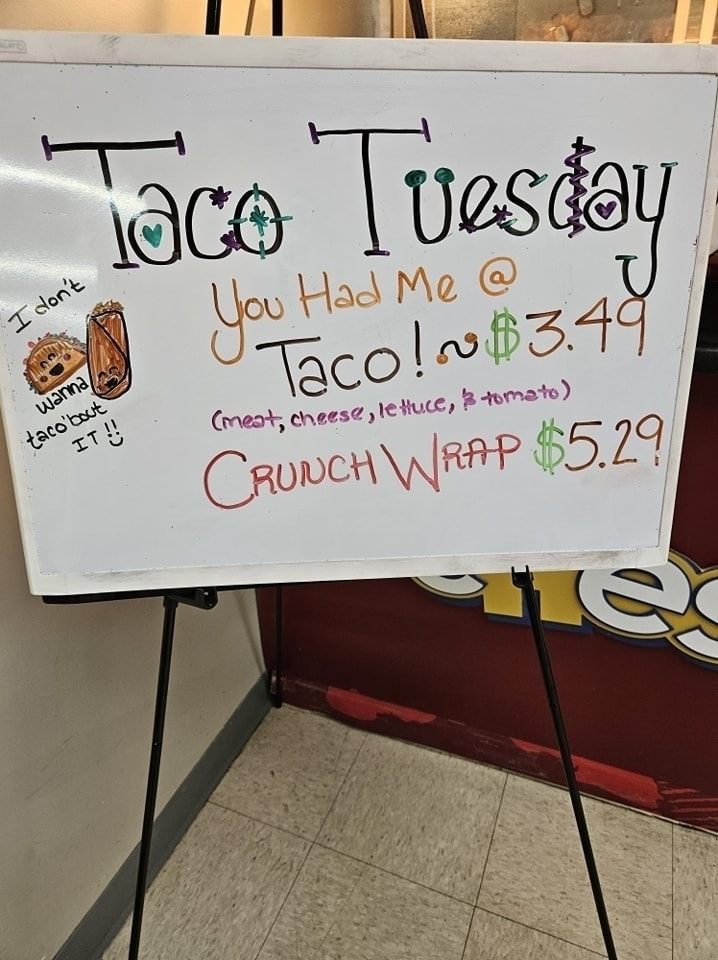 Taco Tuesday
You Had Me @
Taco! ~ $3.49
(meat, cheese, lettuce, & tomato)
CRUNCH WRAP $5.29
I don't
wanna
taco'bout
IT!!